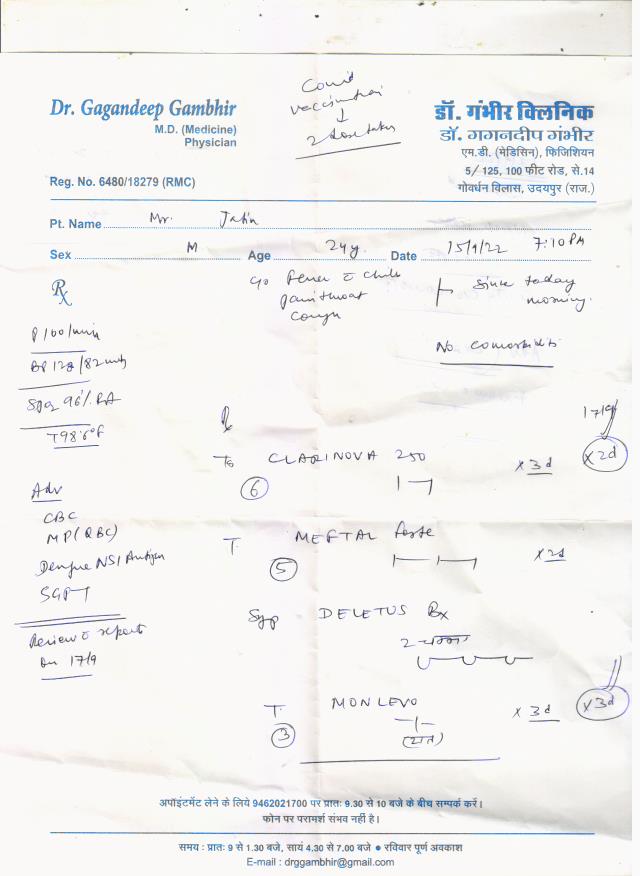 Covid
vaccination
↓
2 dose taken
Dr. Gagandeep Gambhir
M.D. (Medicine)
Physician
Reg. No. 6480/18279 (RMC)
डॉ. गंभीर क्लिनिक
डॉ. गगनदीप गंभीर
एम.डी. (मेडिसिन), फिजिशियन
5/ 125, 100 फीट रोड, से.14
गोवर्धन विलास, उदयपुर (राज.)
Pt. Name Mr. Jatin
Sex M Age 24y Date 15/9/22 7:10 PM
Rx
c/o Fever c chills
pain throat
cough
since today
morning.
No comorbidities
P 100/min
BP 128/82 
SpO2 96% RA
T 98.6°F
Adv
CBC
MP (QBC)
Dengue NS1 Antigen
SGPT
Review c reports
on 17/9
Rx
17/9
Tb CLARINOVA 250 x 3d x 2d
6
T. MEFTAL forte x 2d
5
Syp DELETUS Rx
2 चम्मच
T. MONLEVO x 3d x 3d
3
(रात)
अपॉइंटमेंट लेने के लिये 9462021700 पर प्रातः 9.30 से 10 बजे के बीच सम्पर्क करें।
फोन पर परामर्श संभव नहीं है।
समय : प्रातः 9 से 1.30 बजे, सायं 4.30 से 7.00 बजे ● रविवार पूर्ण अवकाश
E-mail : drggambhir@gmail.com